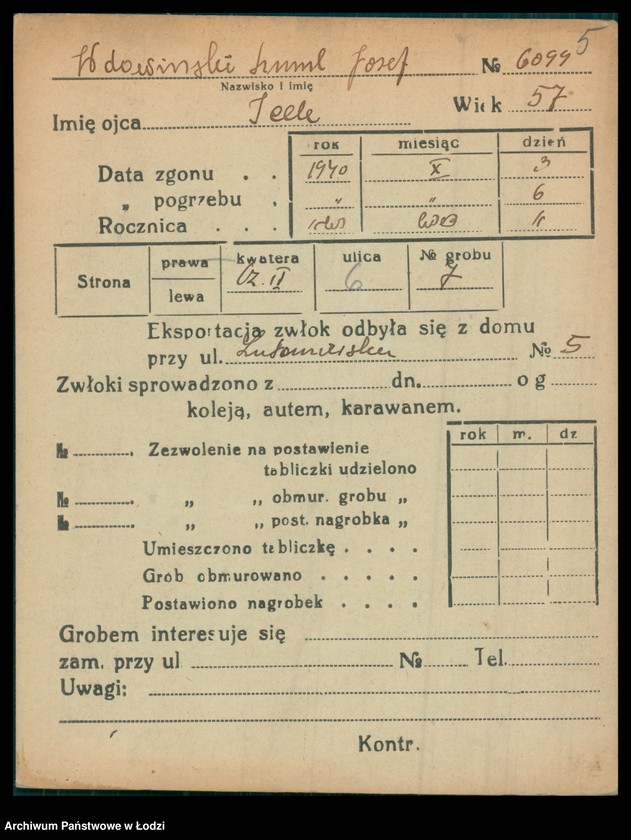 Wdowiński Szmul Josef № 6099 5
Nazwisko i imię
Imię ojca Icek Wiek 57
rok miesiąc dzień
Data zgonu . . 1940 X 3
„ pogrzebu . „ „ 6
Rocznica . . .
Strona prawa kwatera ulica № grobu
lewa II 6 7
Eksportacja zwłok odbyła się z domu
przy ul. Lutomierska № 5
Zwłoki sprowadzono z dn. o g
koleją, autem, karawanem.
rok m. dz
№ Zezwolenie na postawienie
tabliczki udzielono
№ „ „ obmur. grobu „
№ „ „ post. nagrobka „
Umieszczono tabliczkę . . . .
Grób obmurowano . . . . .
Postawiono nagrobek . . . .
Grobem interesuje się
zam. przy ul № Tel.
Uwagi:
Kontr.
Archiwum Państwowe w Łodzi